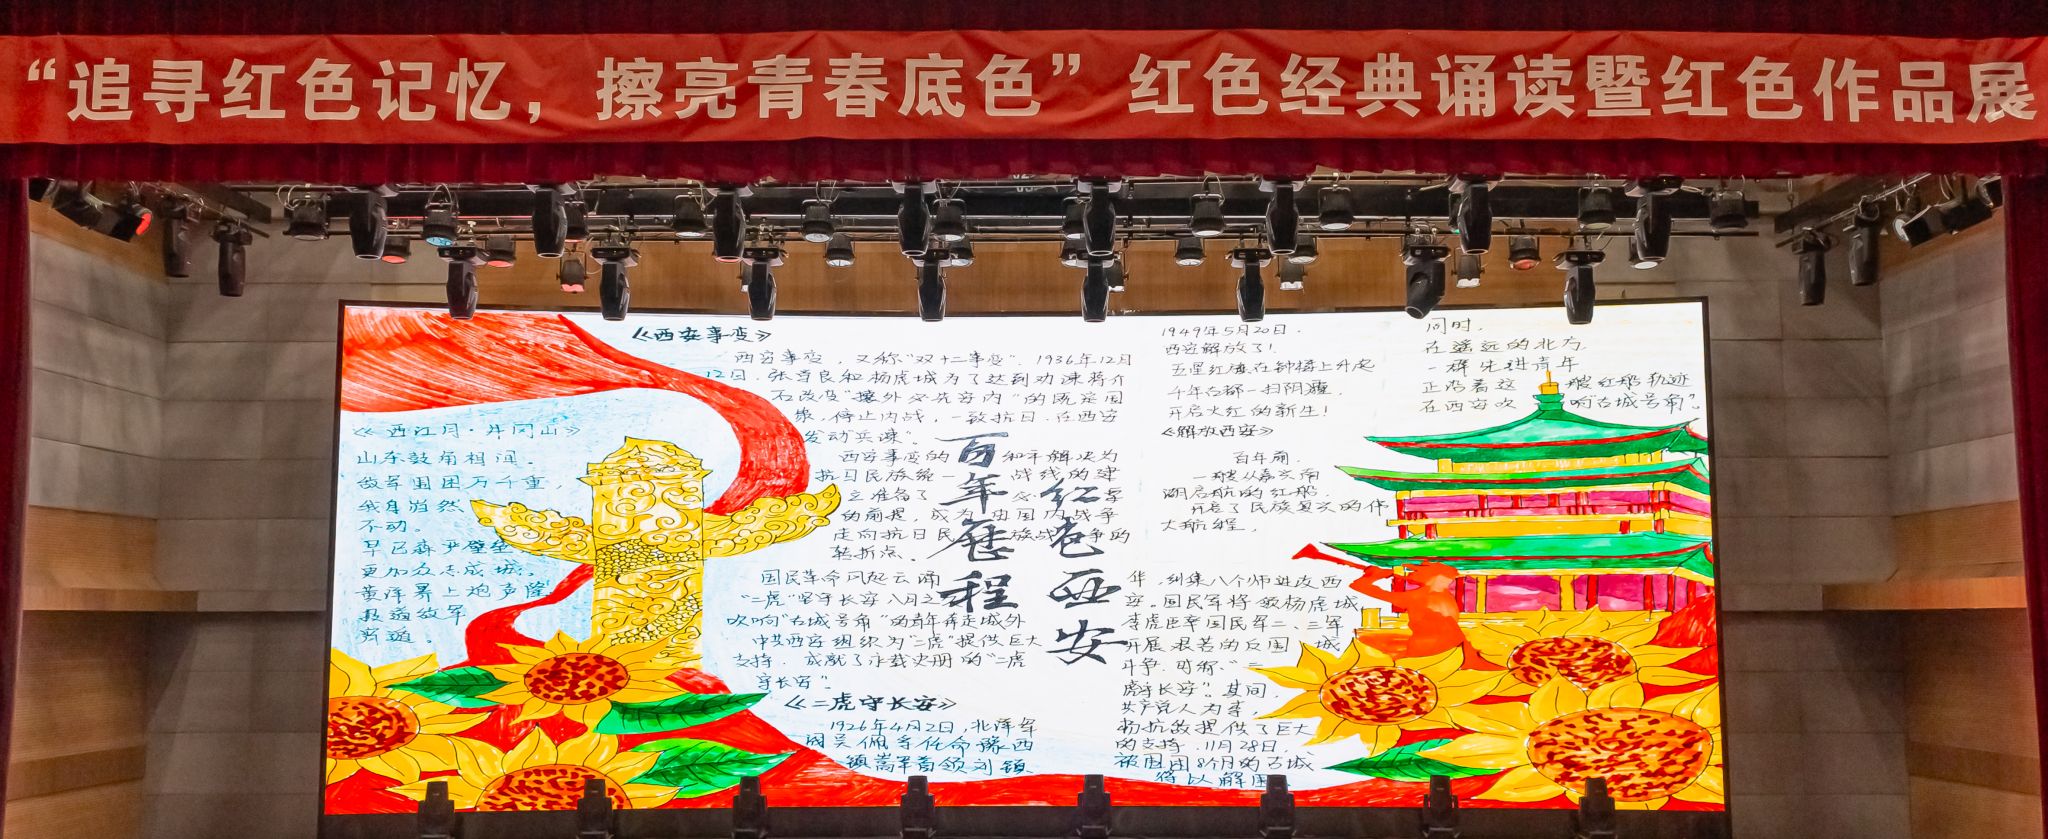 “追寻红色记忆，擦亮青春底色”红色经典诵读暨红色作品展
《西安事变》
西安事变，又称“双十二事变”，1936年12月
12日，张学良和杨虎城为了达到劝谏蒋介
石改变“攘外必先安内”的既定国
策，停止内战，一致抗日，在西安
发动兵谏”。
西安事变的和平解决为
抗日民族统一战线的建
立准备了必要
的前提，成为由国内战争
走向抗日民族战争的
转折点。
《西江月·井冈山》
山东鼓角相闻。
敌军围困万千重，
我自岿然
不动。
早已森严壁垒
更加众志成城。
黄洋界上炮声隆
报道敌军
宵遁。
百年历程
红色西安
国民革命风起云涌
“二虎”坚守长安八月之
吹响“古城号角”的青年奔走城外
中共西安组织为“二虎”提供巨大
支持，成就了永载史册的“二虎
守长安”。
《二虎守长安》
1926年4月2日，北洋军
阀吴佩孚任命豫西
镇嵩军首领刘镇
华，纠集八个师进攻西
安。国民军将领杨虎城、
李虎臣率国民军二、三军
开展艰苦的反围城
斗争，可称“二
虎守长安”。其间，
共产党人为李，
杨抗敌提供了巨大
的支持，11月28日，
被围困8个月的古城
得以解围
1949年5月20日，
西安解放了！
五星红旗在钟楼上升起
千年古都一扫阴霾
开启火红的新生！
《解放西安》
百年前，
一艘从嘉兴南
湖启航的红船，
开启了民族复兴的伟
大航程，
同时，
在遥远的北方，
一群先进青年
正沿着这一艘红船轨迹
在西安吹响“古城号角”。